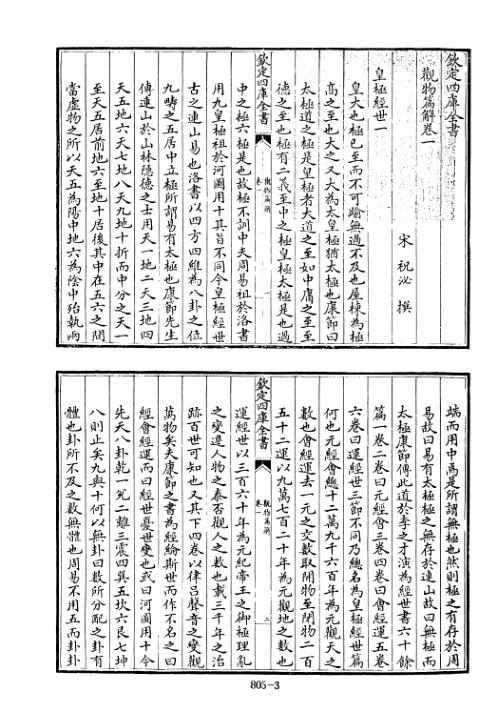 欽定四庫全書
觀物篇解卷一
宋 祝泌 撰
皇極經世一
皇大也極已至而不可踰無過不及也屋棟為極
高之至也大之又大為太皇極猶太極也康節曰
太極道之極是皇極者大道之至如中庸之至至
德之至也極有二義至中之極皇極太極是也過
中之極六極是也故極不訓中夫周易祖於洛書
用九皇極祖於河圖用十其旨不同今皇極經世
古之連山易也洛書以四方四維為八卦之位
九疇之五居中立極所謂易有太極也康節先生
傳連山於山林隱德之士用天一地二天三地四
天五地六天七地八天九地十折而中分之天一
至天五居前地六至地十居後其中在五六之間
當虛物之所以天五為陽中地六為陰中殆執兩
欽定四庫全書
觀物篇解
卷一
一
端而用中焉是所謂無極也然則極之有存於周
易故曰易有太極極之無存於連山故曰無極而
太極康節傳此道於李之才演為經世書六十餘
篇一卷二卷曰元經會三卷四卷曰會經運五卷
六卷曰運經世三節不同乃總名為皇極經世篇
何也元經會總十二萬九千六百年為元觀天之
數也會經運去一元之交數取開物至閉物二百
五十二運以九萬七百二十年為元觀地之數也
運經世以三百六十年為元紀帝王之御極理亂
之變達人物之泰否觀人之數也載三千年之治
跡百世可知也又其下四卷以律吕聲音之變觀
萬物矣夫康節之書為經綸斯世而作不名之曰
經會經運而曰經世憂世變也或曰河圖用十今
先天八卦乾一兊二離三震四巽五坎六艮七坤
八則止矣九與十何以無卦曰數所分配之卦有
體也卦所不及之數無體也周易不用五而卦卦
欽定四庫全書
觀物篇解
卷一
二
805-3